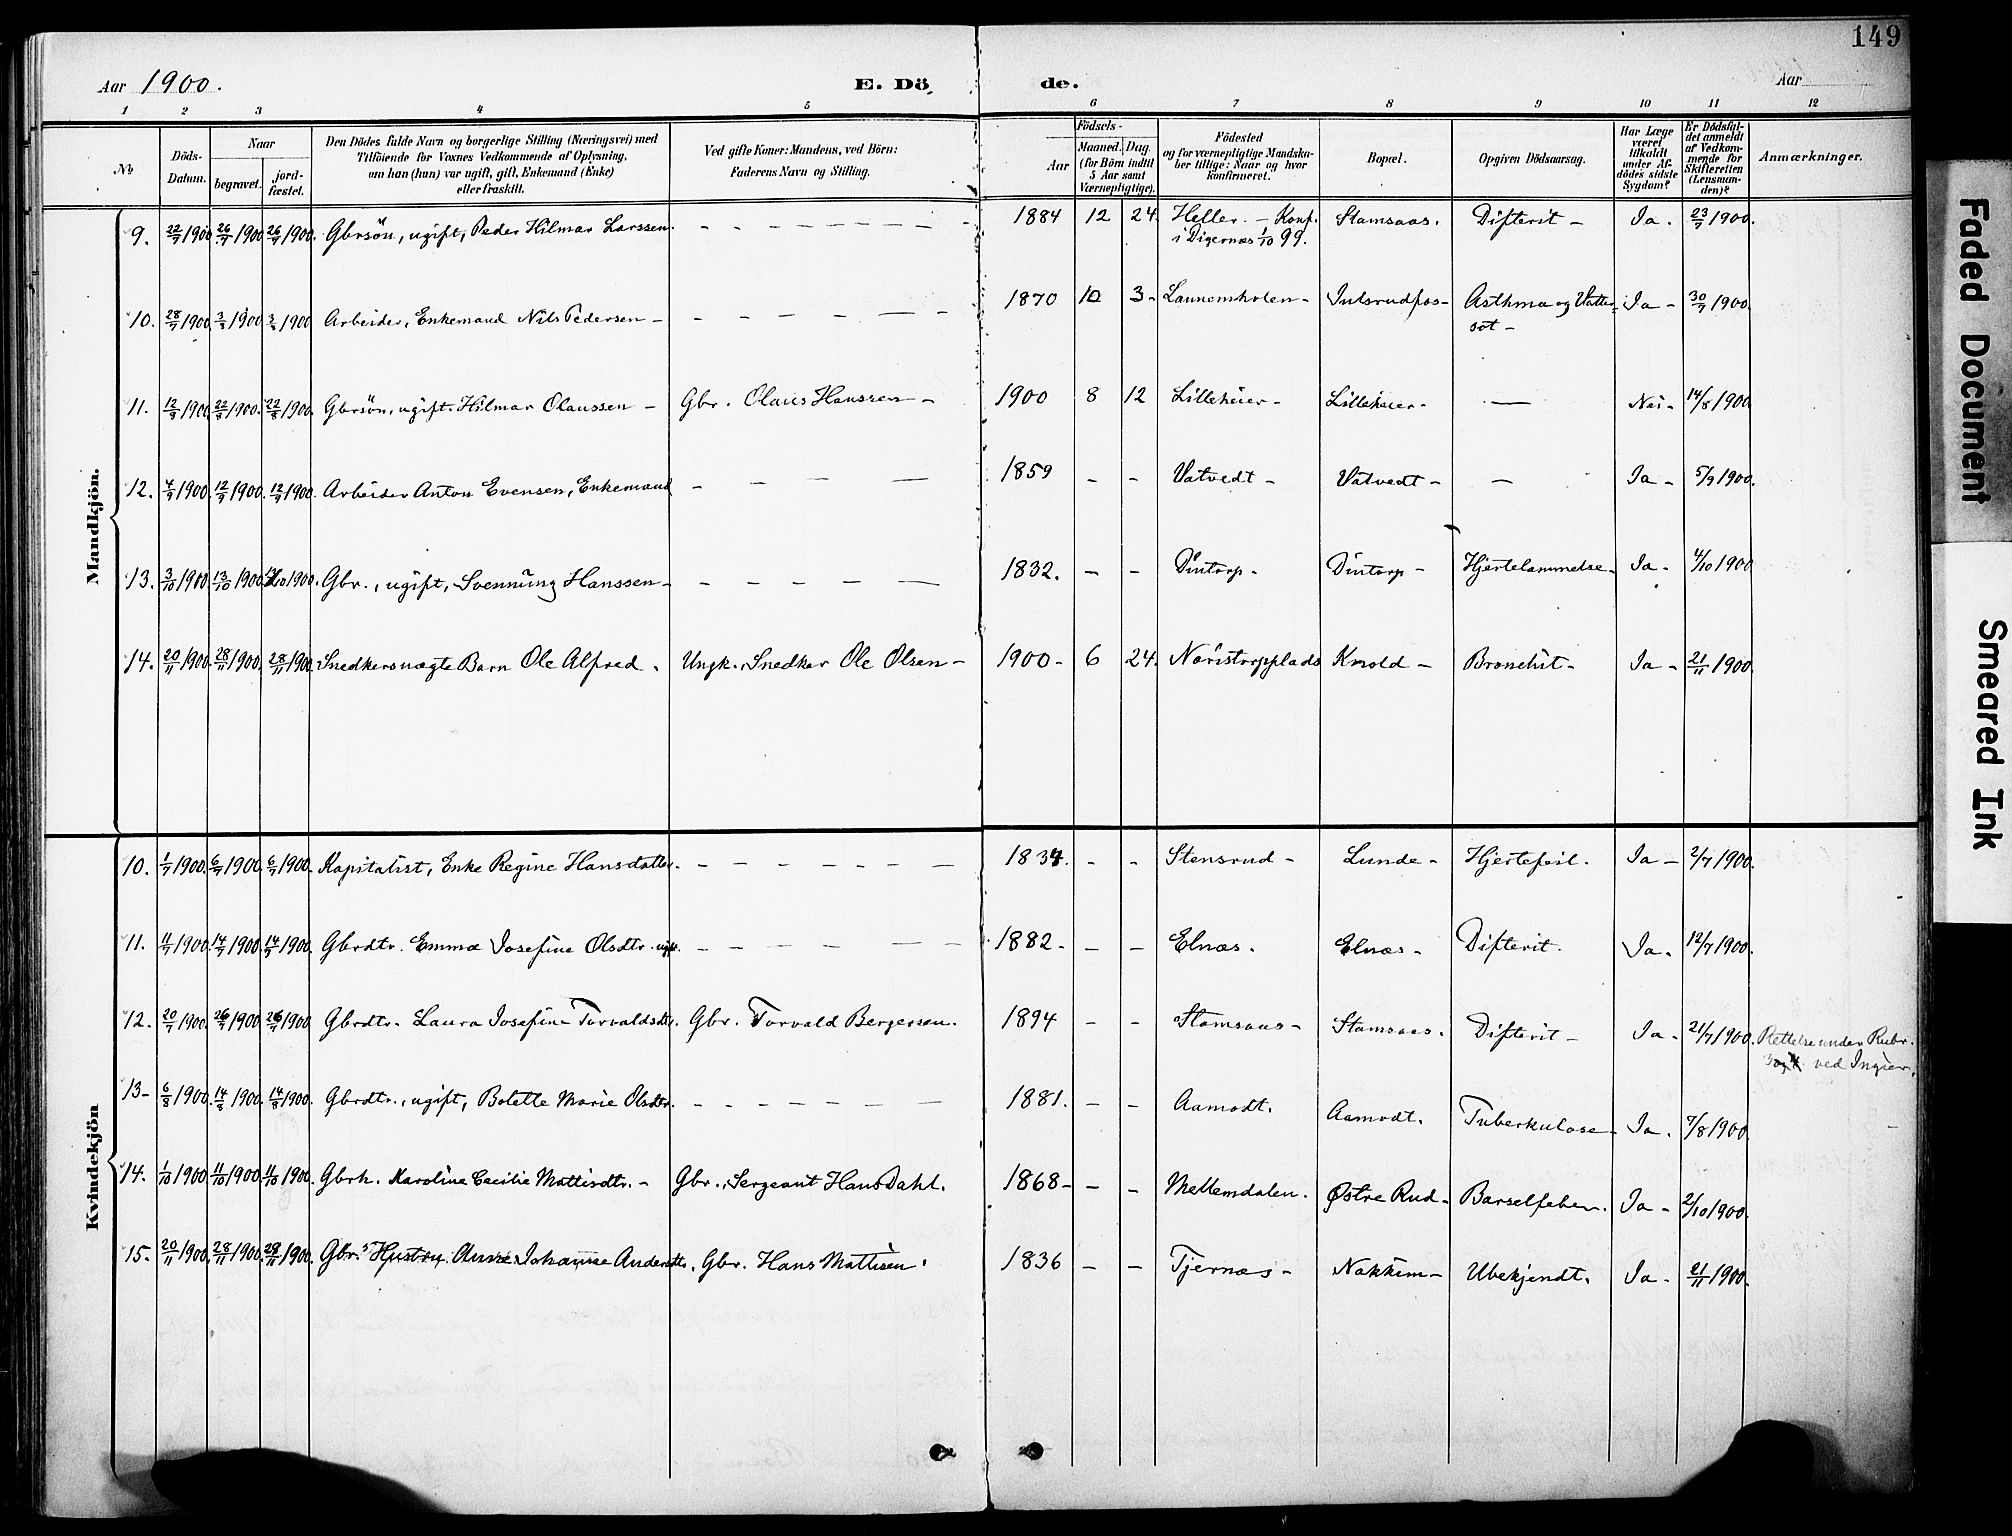 149
Aar 1900.
E. Dö
de.
Aar
1 2 3 4 5 6 7 8 9 10 11 12
No
Döds-Datum.
Naar
begravet.
jord-fæstet.
Den Dödes fulde Navn og borgerlige Stilling (Næringsvei) med
Tilföiende for Voxnes Vedkommende af Oplysning,
om han (hun) var ugift, gift, Enkemand (Enke)
eller fraskilt.
Ved gifte Koner: Mandens, ved Börn:
Faderens Navn og Stilling.
Födsels-
Aar
Maaned. Dag.
(for Börn indtil
5 Aar samt
Værnepligtige).
Födested
og for værnepligtige Mandska-
ber tillige: Naar og hvor
konfirmeret.
Bopæl.
Opgiven Dödsaarsag.
Har Læge
været
tilkaldt
under Af-
dödes sidste
Sygdom?
Er Dödsfal-
det anmeldt
af Vedkom-
mende for
Skifteretten
(Lensman-
den)?
Anmærkninger.
Mandkjön.
9. 22/7 1900 26/7 1900 26/7 1900. Gbrsön, ugift, Peder Hilmar Larssen. - - - - - - - 1884 12 24. Heller. - Konf. Stamsaas. Difterit - Ja. 23/7 1900.
i Digernæs 1/10 99.
10. 28/7 1900. 3/8 1900. 3/8 1900 Arbeider, Enkemand Nils Pedersen - - - - - - - 1870 10 3- Lannemholen - Julsrudfos- Asthma og Vatter= Ja - 30/7 1900.
sot -
11. 12/8 1900 22/8 1900. 22/8 1900. Gbrsön, ugift. Hilmar Olaussen - Gbr. Olaus Hanssen - 1900 8 12 Lilleheier - Lilleheier. - Nei - 14/8 1900
12. 4/9 1900 12/9 1900. 12/9 1900. Arbeider Anton Evensen, Enkemand - - - - - 1859 - - Vatvedt - Vatvedt - - Ja - 5/9 1900.
13. 3/10 1900 13/10 1900. 13/10 1900. Gbr., ugift, Svennung Hanssen - - - - - - - 1832. - - Dintorp - Dintorp - Hjertelammelse - Ja - 4/10 1900
14. 20/11 1900. 28/11 1900. 28/11 1900. Snedkers uægte Barn Ole Alfred. Ungk. Snedker Ole Olsen - 1900 - 6 24. Noristorpplads Knold - Bronchit - Ja - 21/11 1900.
Kvindekjön
10. 1/7 1900. 6/7 1900. 6/7 1900. Kapitalist, Enke Regine Hansdatter. - - - - - - - 1834. - - Stensrud - Lunde - Hjertefeil. Ja - 2/7 1900.
11. 11/7 1900. 14/7 1900. 14/7 1900. Gbrdtr. Emma Josefine Olsdtr. ugift. - - - - - - - 1882 - - - Elnæs. Elnæs - Difterit. Ja. 12/7 1900.
12. 20/7 1900. 26/7 1900. 26/7 1900 Gbrdtr. Laura Josefine Torvaldsdtr. Gbr. Torvald Bergersen. 1894 - - Stamsaas - Stamsaas. Difterit - Ja - 21/7 1900. Rettelse under Rubr.
3 og 4 ved Ingier.
13- 6/8 1900. 14/8 1900. 14/8 1900. Gbrdtr., ugift, Bolette Marie Olsdtr. - - - - - - - 1881. - - Aamodt. Aamodt. Tuberkulose - Ja. 7/8 1900.
14. 1/10 1900. 11/10 1900. 11/10 1900. Gbrk. Karoline Cecilie Mattisdtr. - Gbr., Sergeant Hans Dahl. 1868 - - - Mellemdalen. Østre Rud - Barselfeber. Ja - 2/10 1900.
15. 20/11 1900. 28/11 1900. 28/11 1900. Gbr.s Hustru Anne Johanne Andersdtr. Gbr. Hans Mattisen. 1836 - - Tjernæs - Nakkim - Ubekjendt. Ja - 21/11 1900.
Faded Document
Smeared Ink